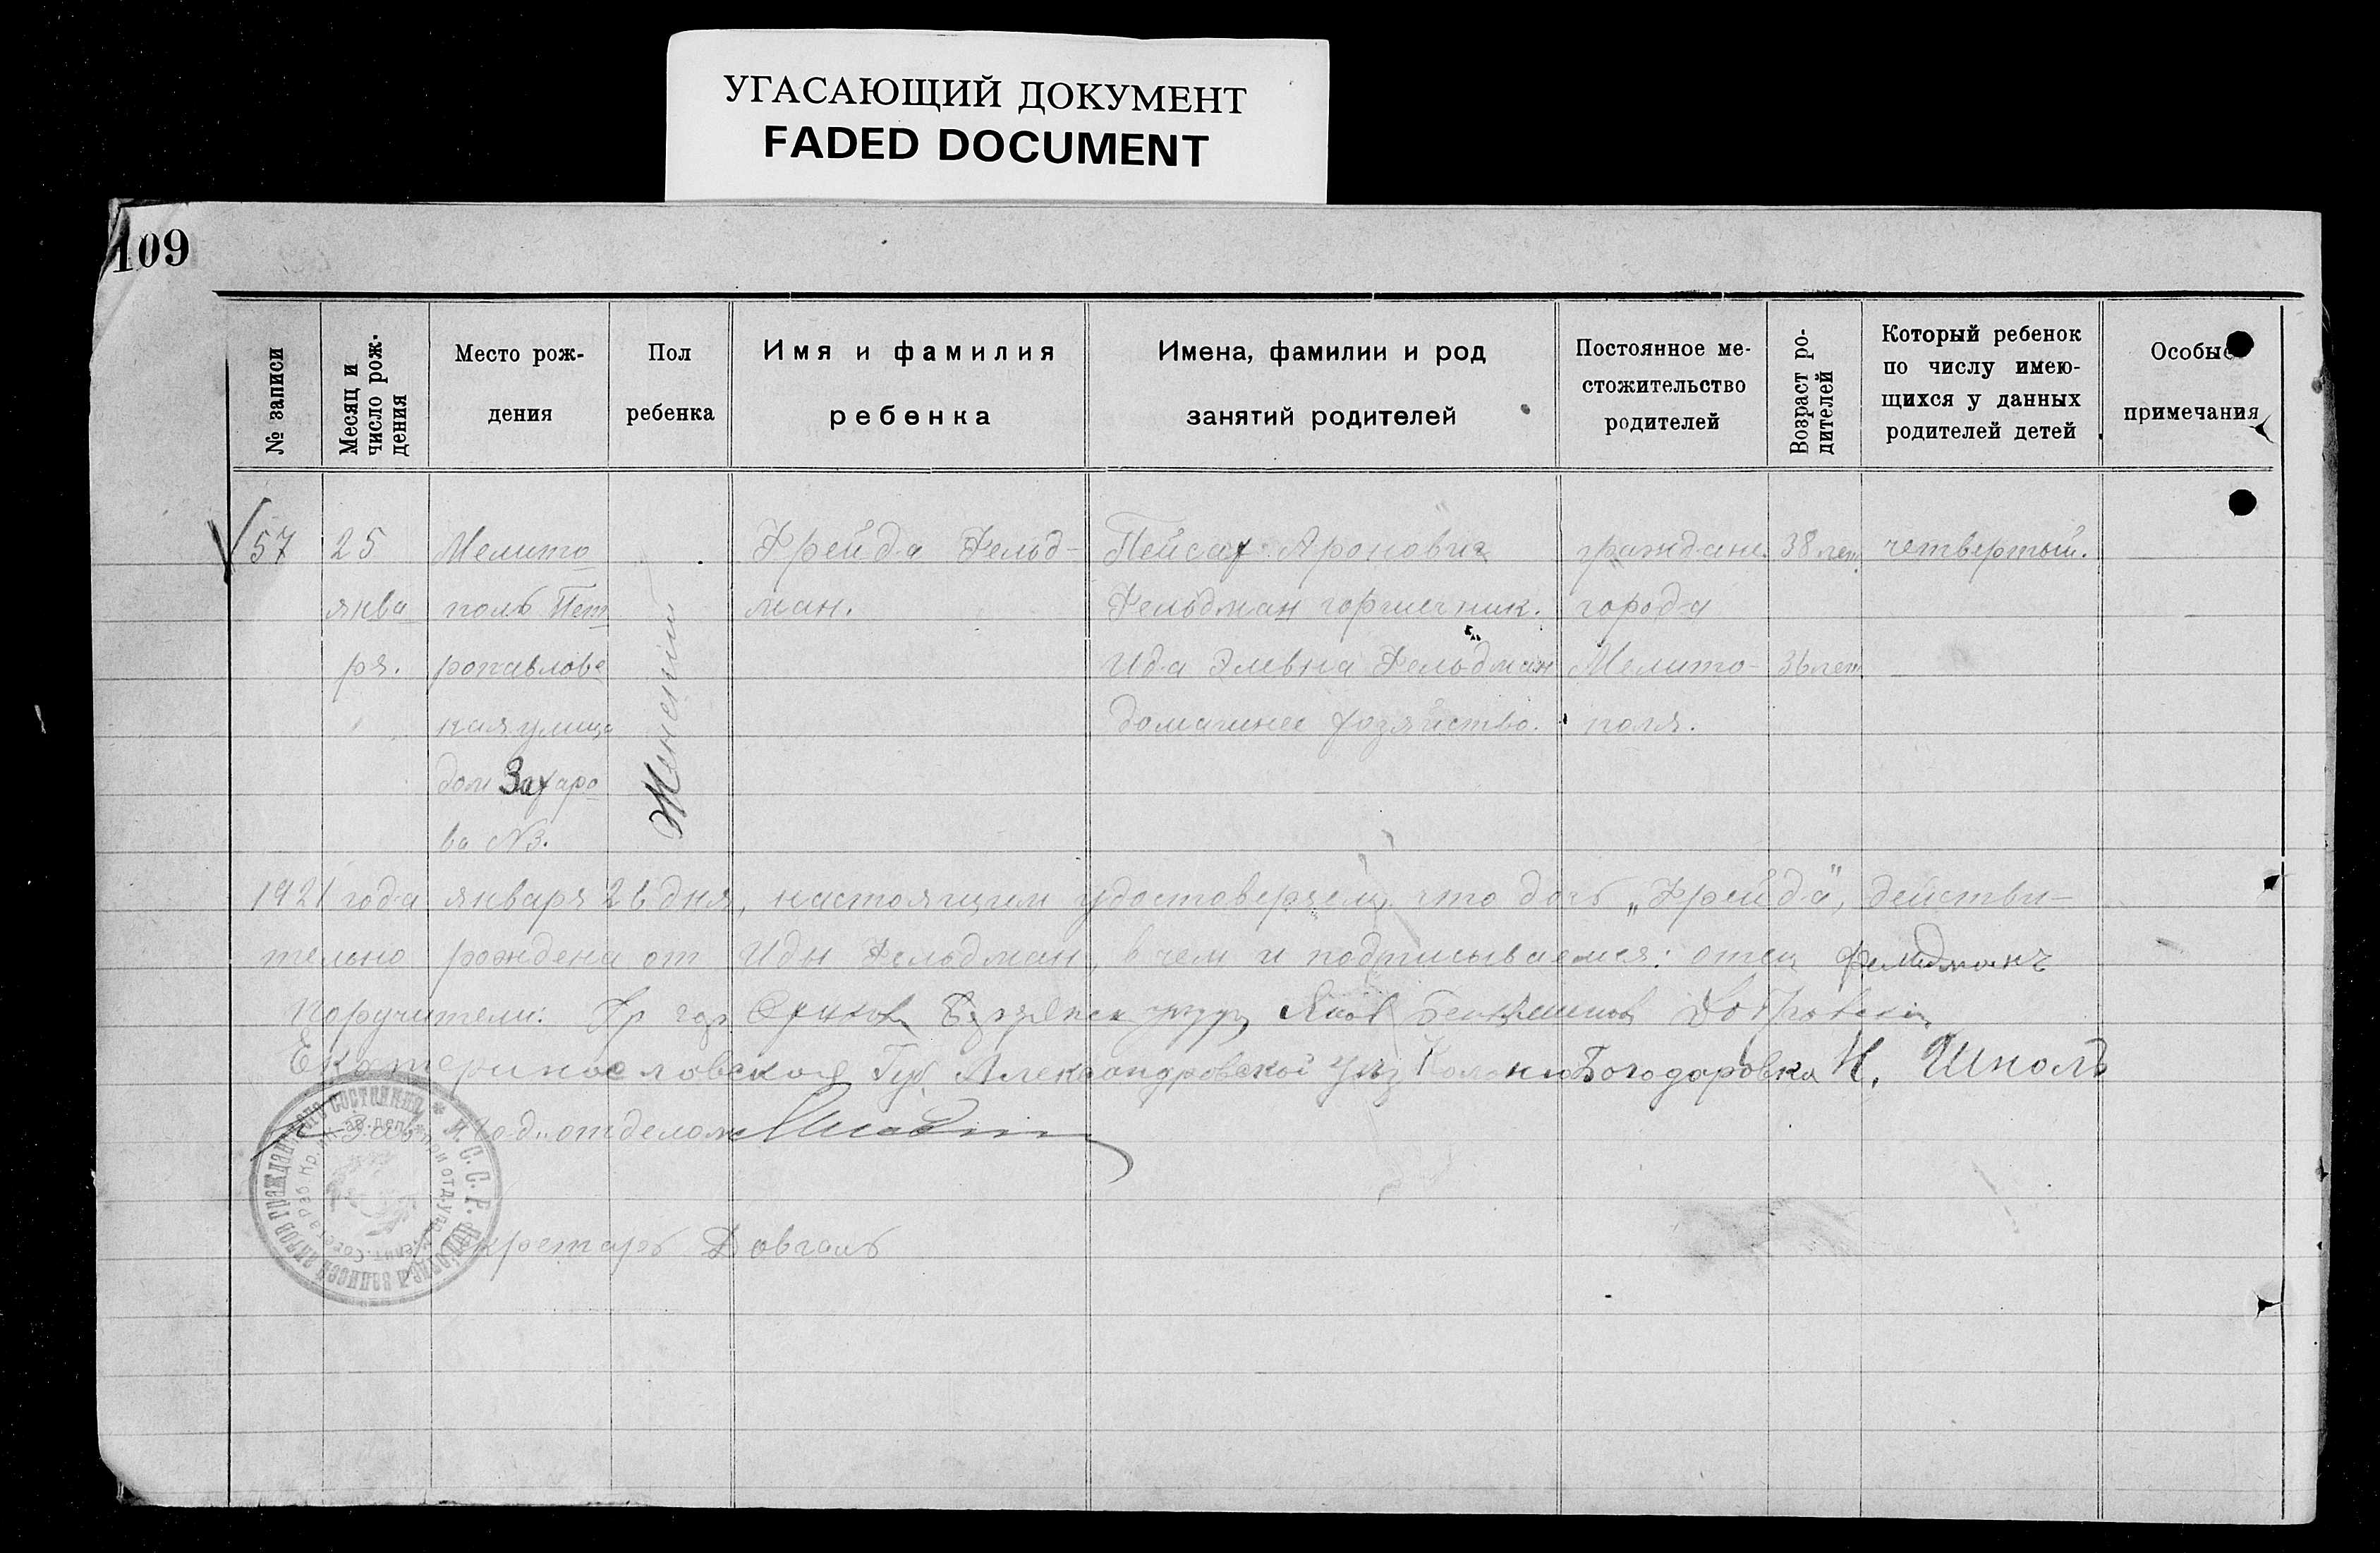 УГАСАЮЩИЙ ДОКУМЕНТ
FADED DOCUMENT
109
№ записи
Месяц и число рождения
Место рож-
дения
Пол
ребенка
Имя и фамилия
ребенка
Имена, фамилии и род
занятий родителей
Постоянное ме-
стожительство
родителей
Возраст ро-
дителей
Который ребенок
по числу имею-
щихся у данных
родителей детей
Особые
примечания
57
25
янва
ря.
Мелито
поль Пет
ропавловс
кая улица
дом Захаро
ва №3.
Женский
Фрейда Фельд-
ман.
Пейсах Аронович
Фельдман горшечник.
Ида Элевна Фельдман
домашнее хозяйство.
граждане
города
Мелито-
поля.
38 лет
36 лет
четвертый.
1921 года января 26 дня, настоящим удостоверяем, что дочь „Фрейда", действи-
тельно рождена от Иды Фельдман, в чем и подписываемся: отец Фельдманъ
Поручители: Гр гор
Екатеринославская Губ Александровской Уез Колония Богодаровка И. Школь
Зав. под. отделом
Секретарь Довгаль